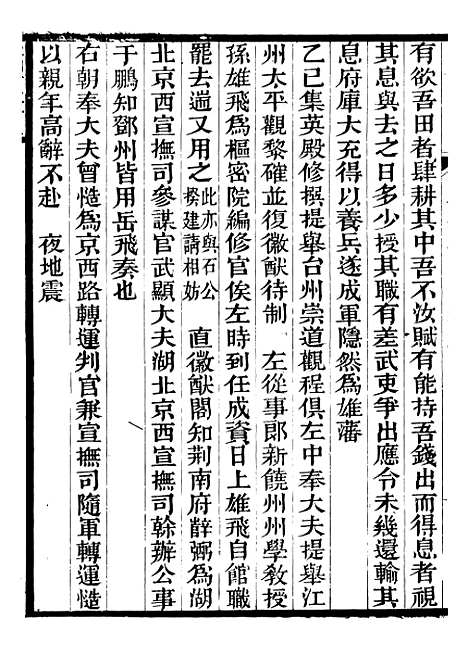 有欲吾田者肆耕其中吾不汝賦有能持吾錢出而得息者視
其息與去之日多少授其職有差武吏爭出應令未幾還輸其
息府庫大充得以養兵遂成軍隱然爲雄藩
乙巳集英殿修撰提舉台州崇道觀程俱左中奉大夫提舉江
州太平觀黎確並復徽猷待制　左從事郎新饒州州學教授
孫雄飛爲樞密院編修官俟左時到任成資日上雄飛自館職
罷去逾又用之此亦與石公揆建請相妨　直徽猷閣知荆南府薛弼爲湖
北京西宣撫司參謀官武顯大夫湖北京西宣撫司幹辦公事
于鵬知鄧州皆用岳飛奏也
右朝奉大夫曾慥爲京西路轉運判官兼宣撫司隨軍轉運慥
以親年高辭不赴　夜地震